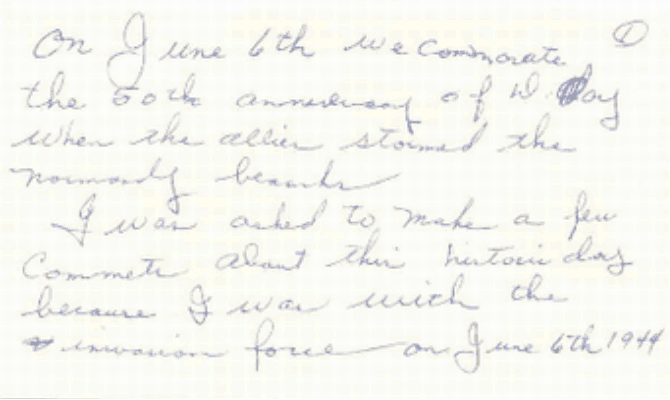 On June 6th we Commorate ①
the 50th anniversary of D. Day
when the allies stormed the
normandy beaches
I was asked to make a few
Commets about this historic day
because I was with the
invasion force on June 6th 1944